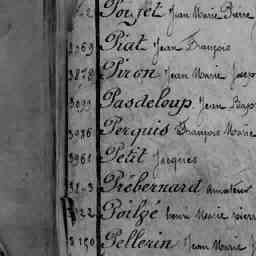 Poizet Jean Marie Pierre
2969 Piat Jean François
3828 Piron Jean Marie Josep
3099 Pasdeloup Jean Bap
3936 Perquis François Marie
3961 Petit Jacques
Prébernard amateur
Poilzé Marie
3190 Pellerin Jean Marie